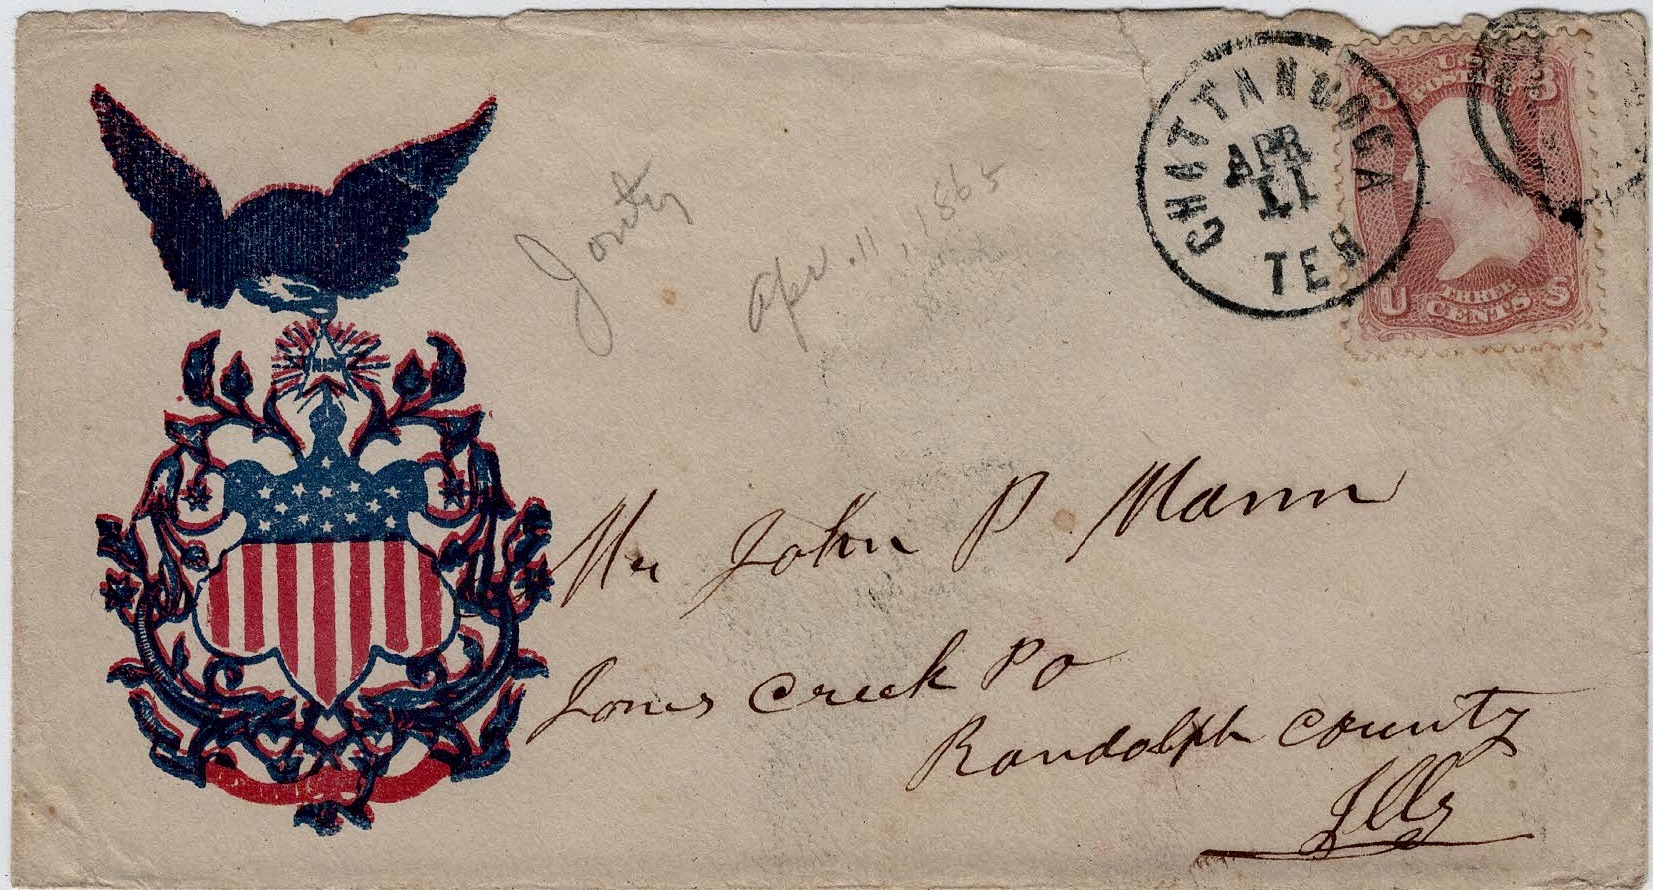 CHATTANOOGA
APR
11
TEN
U.S.
POSTAGE
3 3
THREE
U CENTS S
Jonty
Apr. 11, 1865
Mr John P. Mann
Jones Creek PO
Randolph County
Ills